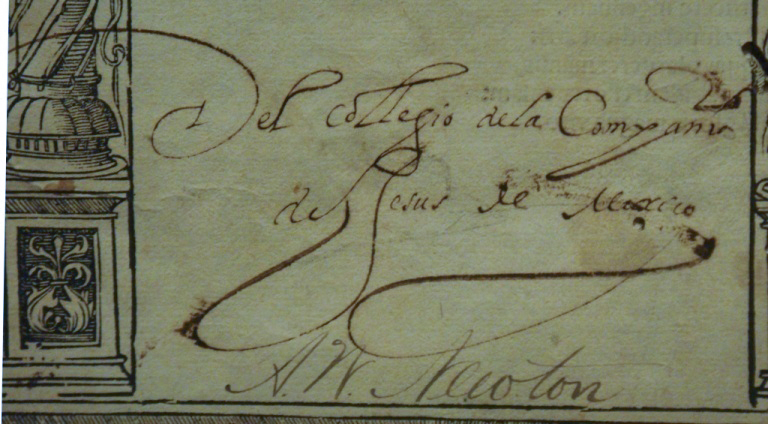 Del collegio dela Compania
de Jesus de Mexico
A. W. Newton